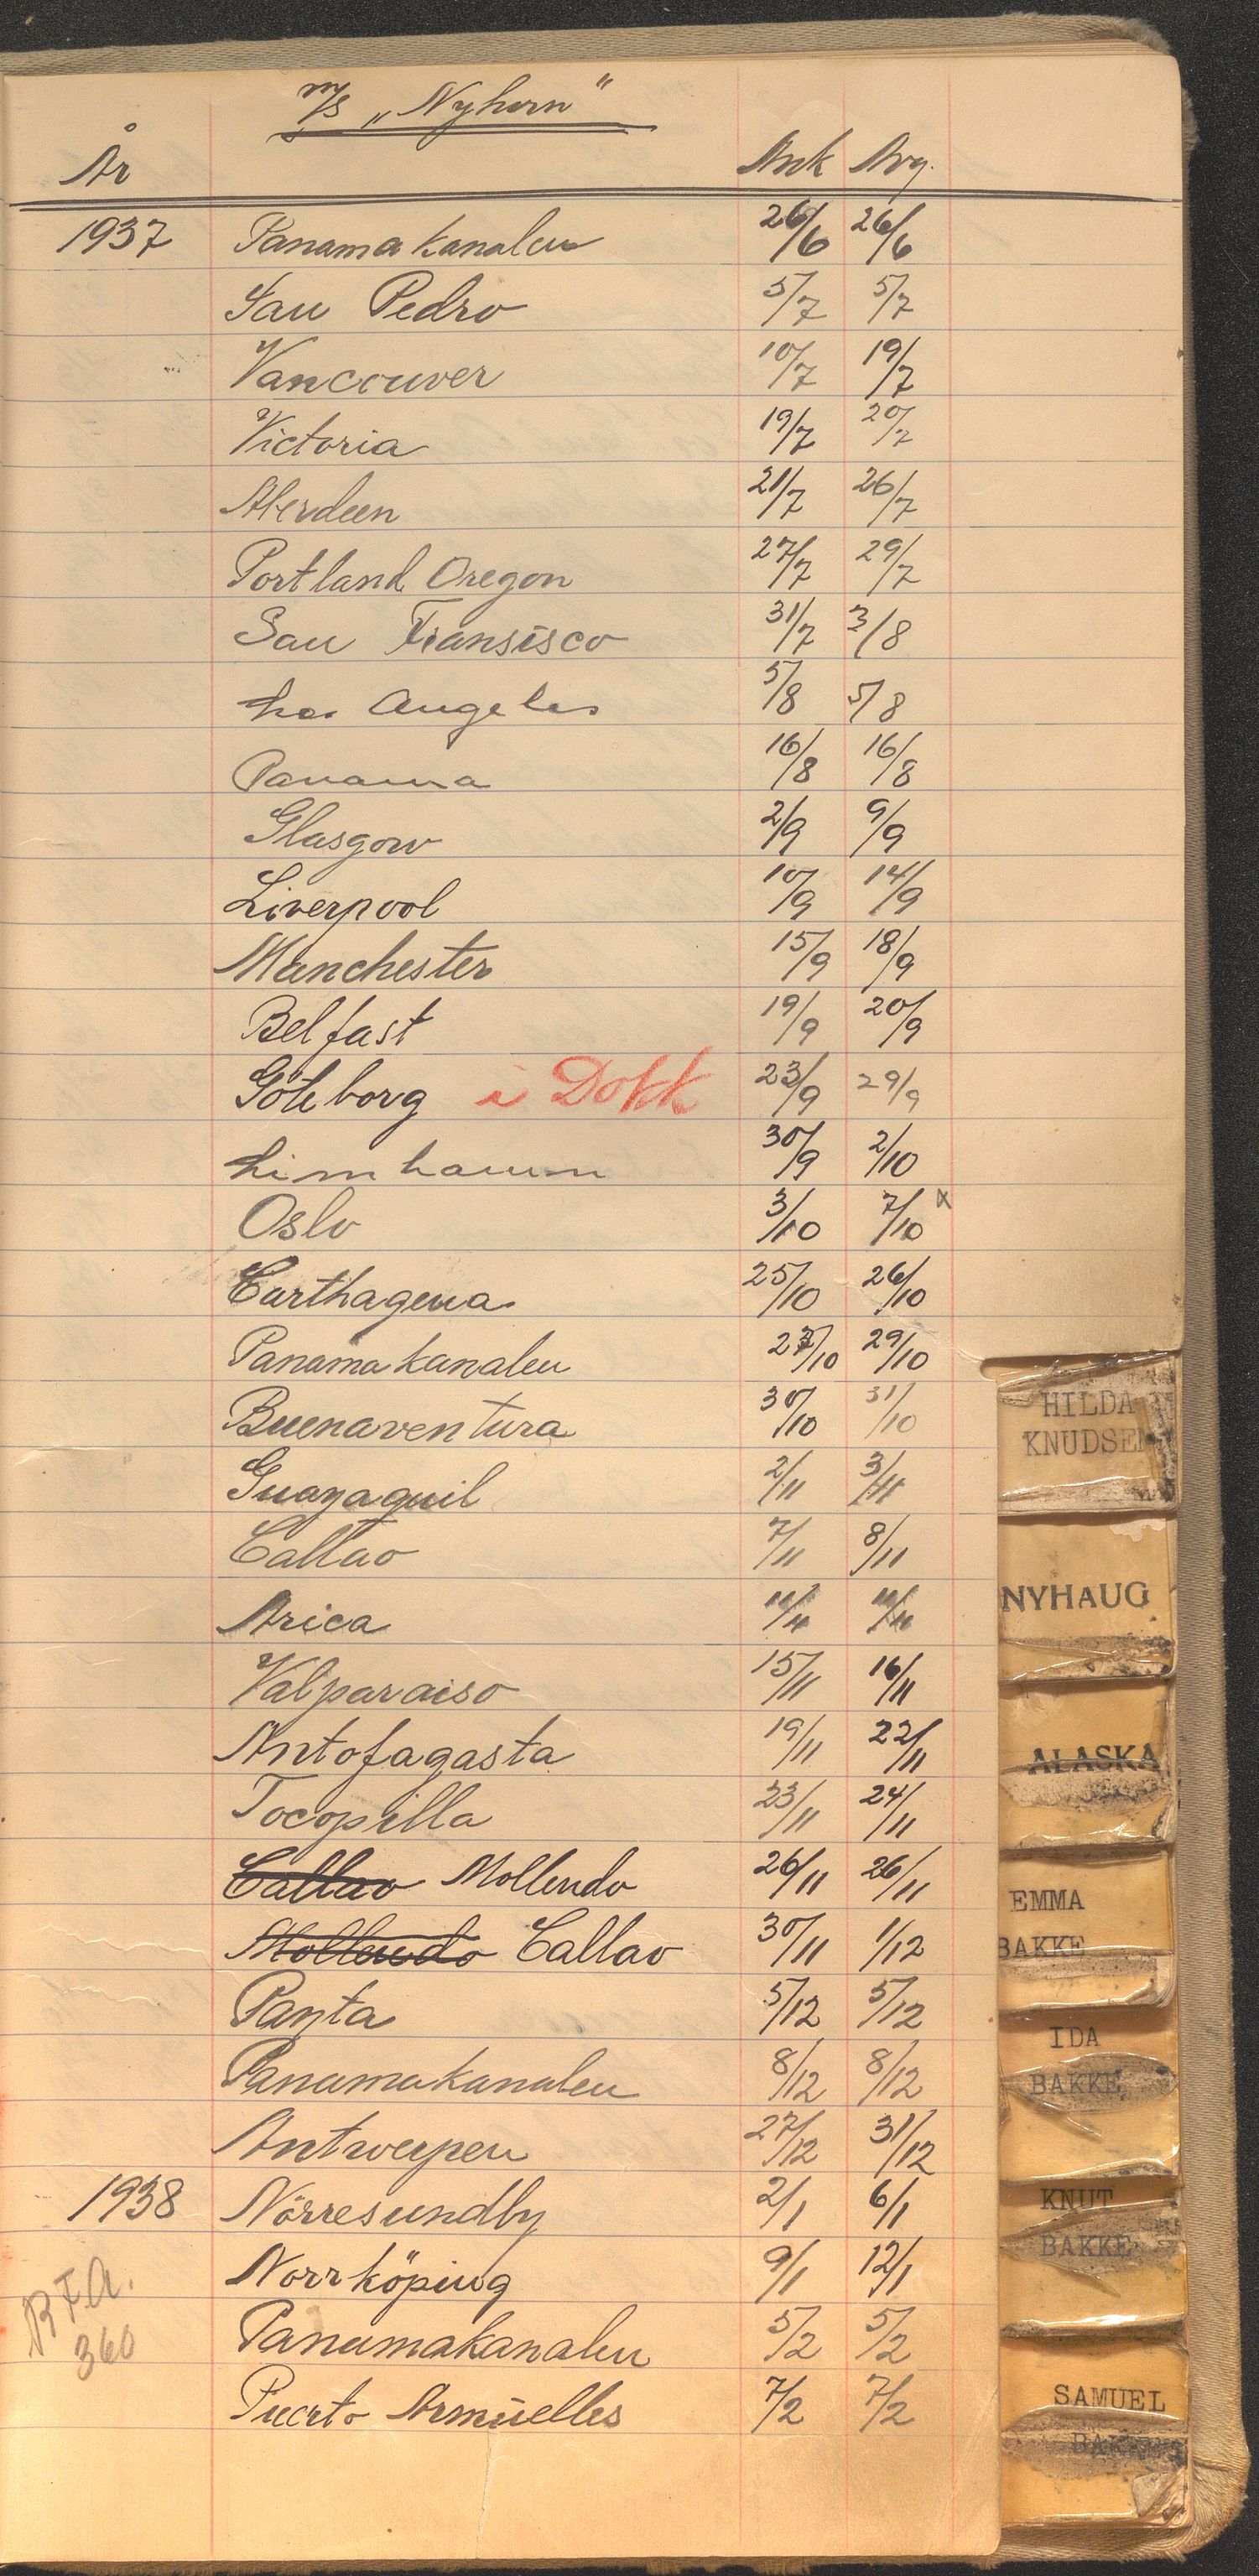 M/S „Nyhorn"
År Ank Avg.
1937 Panamakanalen 26/6 26/6
San Pedro 5/7 5/7
Vancouver 10/7 19/7
Victoria 19/7 20/7
Aberdeen 21/7 26/7
Portland Oregon 27/7 29/7
San Fransisco 31/7 3/8
Los Angeles 5/8 5/8
Panama 16/8 16/8
Glasgow 2/9 9/9
Liverpool 10/9 14/9
Manchester 15/9 18/9
Belfast 19/9 20/9
Göteborg i Dokk 23/9 29/9
Limhamn 30/9 2/10
Oslo 3/10 7/10 x
Carthagena 25/10 26/10
Panamakanalen 27/10 29/10
Buenaventura 30/10 31/10
Guayaquil 2/11 3/11
Callao 7/11 8/11
Arica 11/11 11/11
Valparaiso 15/11 16/11
Antofagasta 19/11 22/11
Tocopilla 23/11 24/11
Callao Mollendo 26/11 26/11
Mollendo Callao 30/11 1/12
Panta 5/12 5/12
Panamakanalen 8/12 8/12
Antwerpen 27/12 31/12
1938 Nörresundby 2/1 6/1
Norrköping 9/1 12/1
Panamakanalen 5/2 5/2
Puerto Armuelles 7/2 7/2
360
HILDA
KNUDSEN
NYHAUG
ALASKA
EMMA
BAKKE
IDA
BAKKE
KNUT
BAKKE
SAMUEL